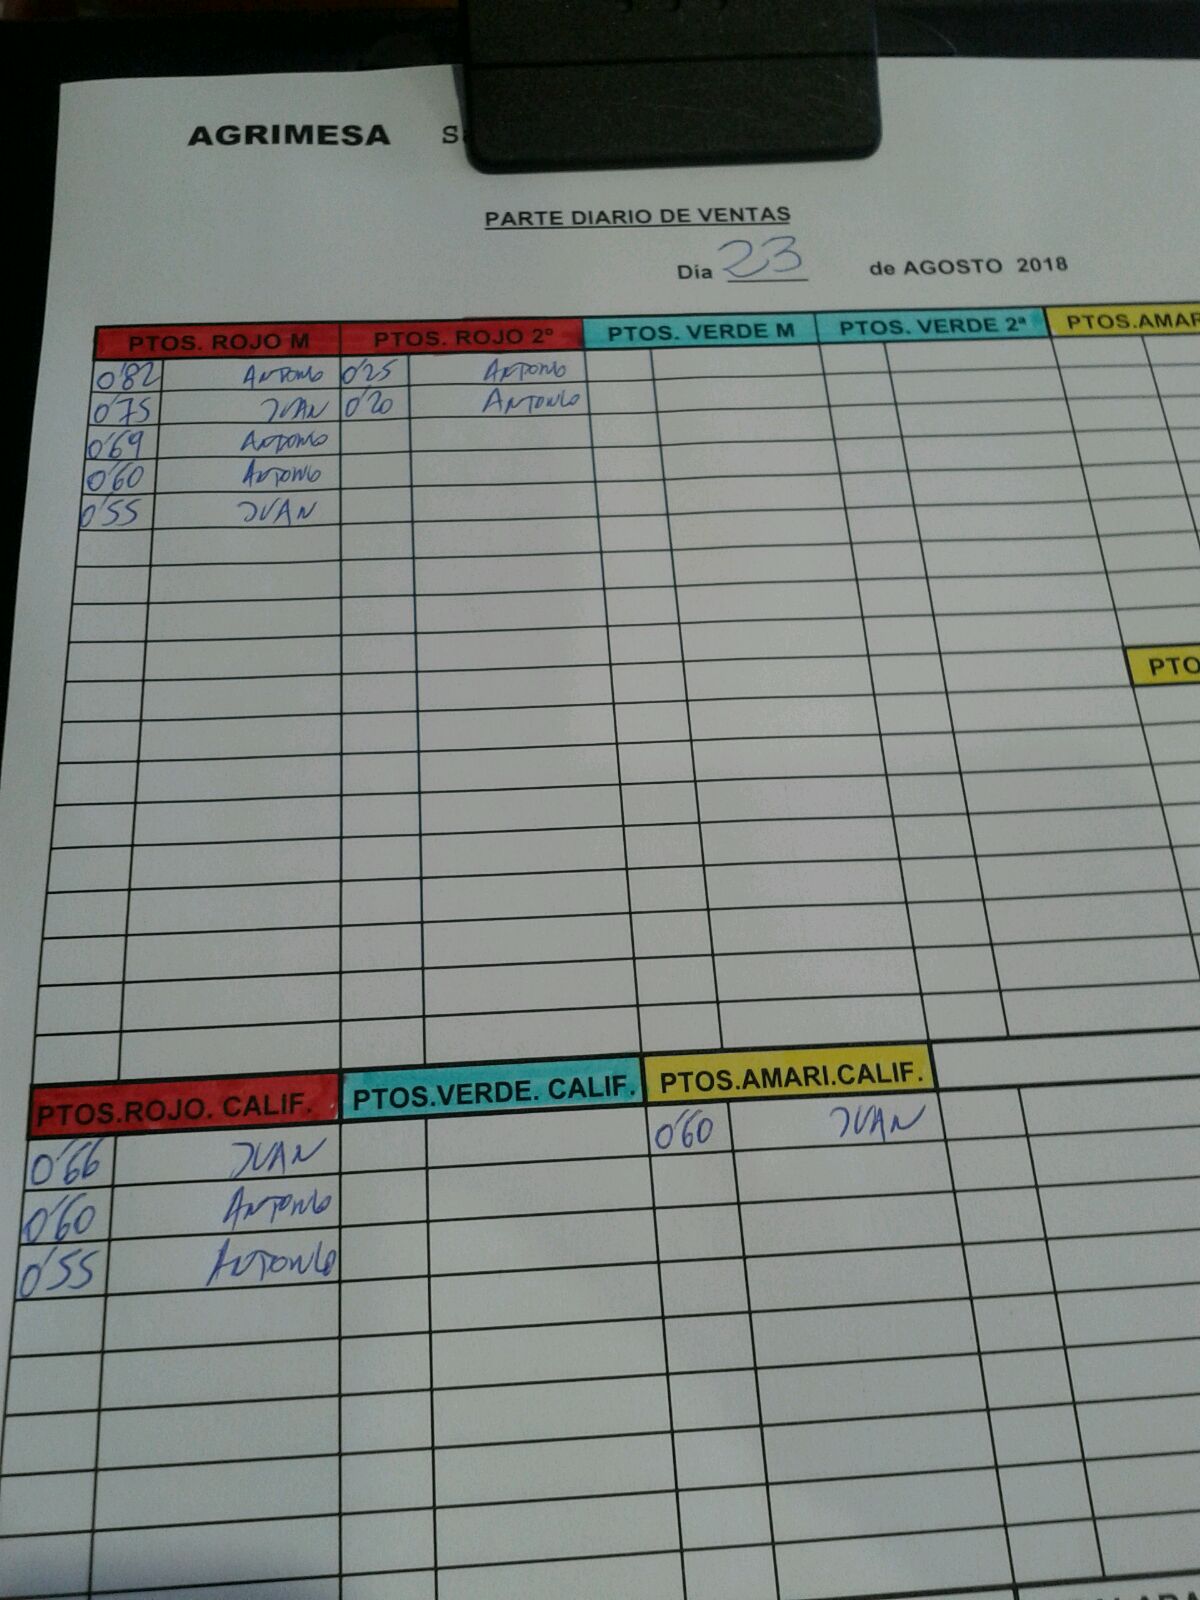 AGRIMESA
PARTE DIARIO DE VENTAS
Día 23 de AGOSTO 2018
PTOS. ROJO M PTOS. ROJO 2ª PTOS. VERDE M PTOS. VERDE 2ª PTOS.AMAR
0'82 ANTONIO 0'25 ANTONIO
0'75 JUAN 0'20 ANTONIO
0'69 ANTONIO
0'60 ANTONIO
0'55 JUAN
PTO
PTOS.ROJO. CALIF. PTOS.VERDE. CALIF. PTOS.AMARI.CALIF.
0'66 JUAN 0'60 JUAN
0'60 ANTONIO
0'55 ANTONIO